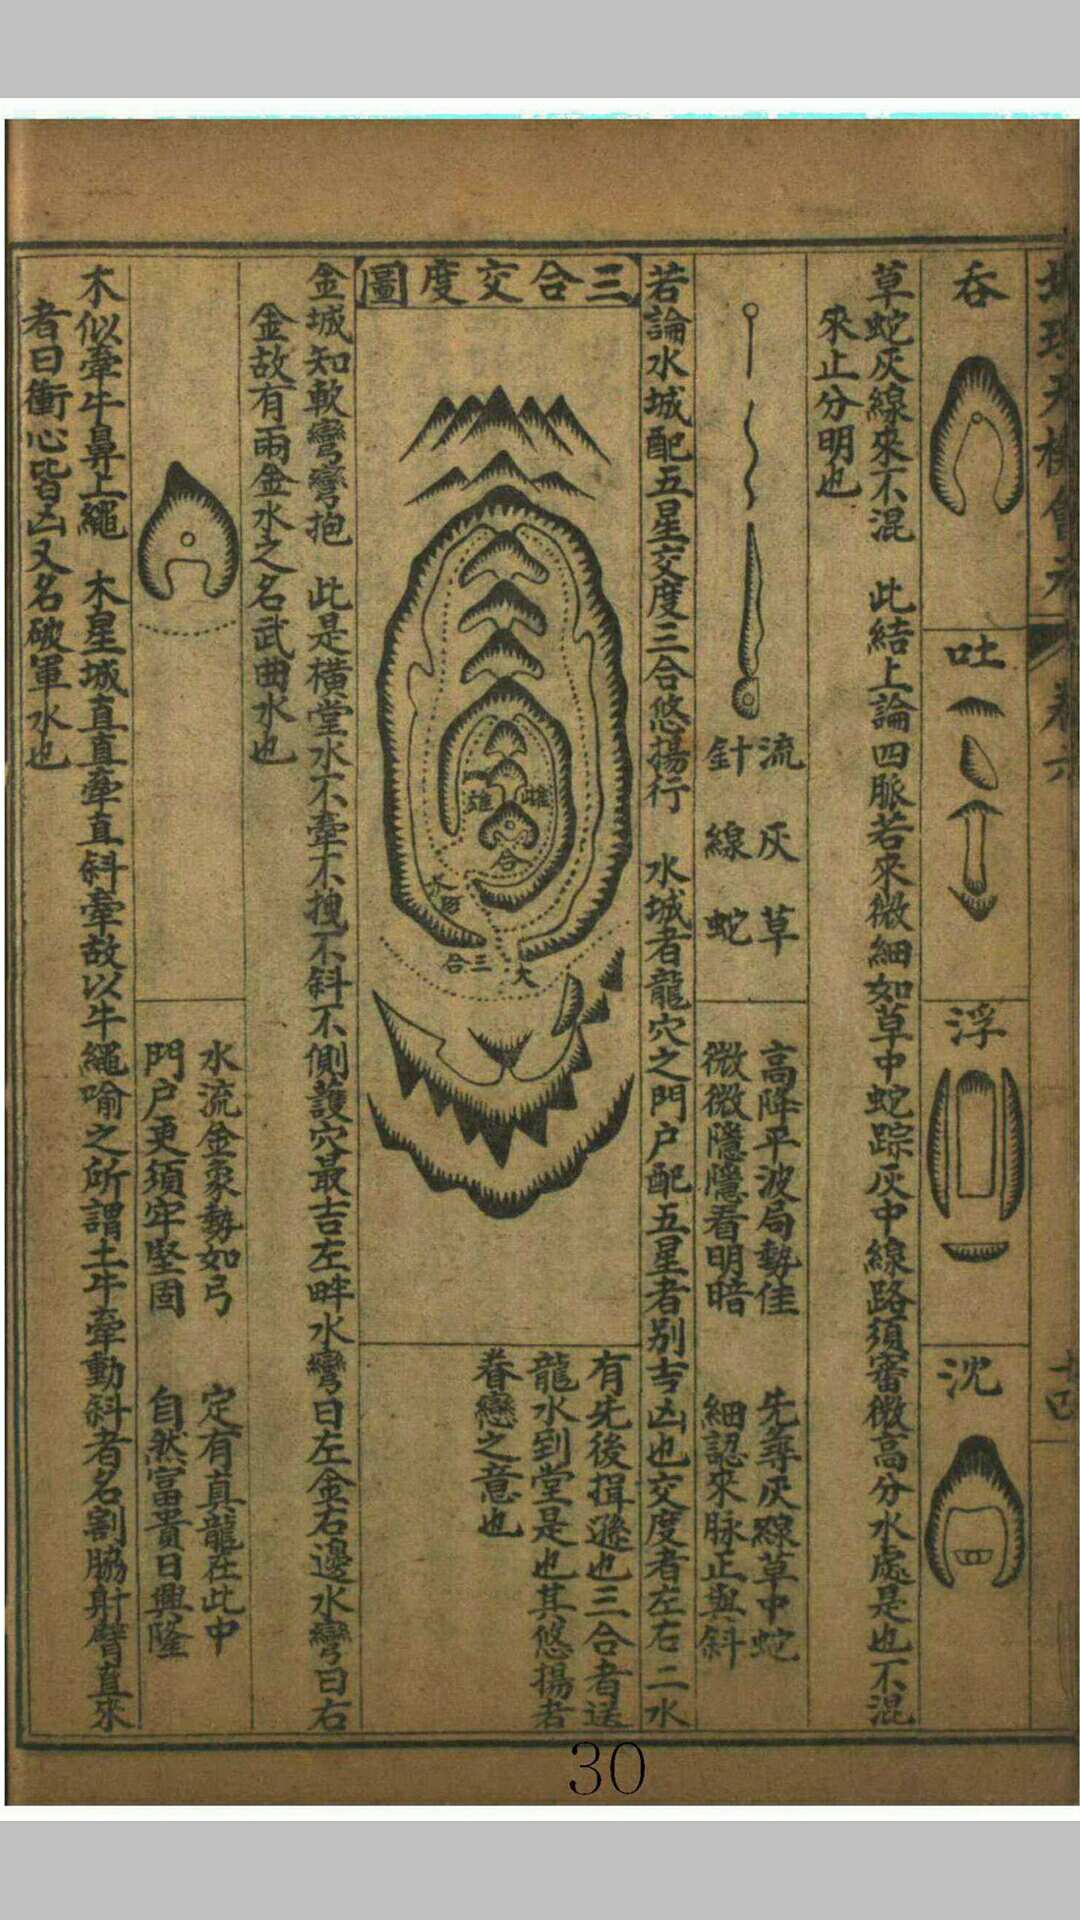 地理天機會元
卷六
十四
吞
吐
浮
沈
草蛇灰線來不混　此結上論四脈若來微細如草中蛇踪灰中線路須審微高分水處是也不混
來止分明也
流　灰　草
針　線　蛇
高降平波局勢佳　先尋灰線草中蛇
微微隱隱看明暗　細認來脉正與斜
若論水城配五星交度三合悠揚行　水城者龍穴之門户配五星者别吉凶也交度者左右二水
三合交度圖
雌
雄
合
大
三合
有先後揖遜也三合者送
龍水到堂是也其悠揚者
眷戀之意也
金城知軟彎彎抱　此是横堂水不牽不拽不斜不側護穴最吉左畔水彎曰左金右邊水彎曰右
金故有兩金水之名武曲水也
水流金象勢如弓　定有真龍在此中
門户更須牢堅固　自然富貴日興隆
木似牽牛鼻上繩　木星城直直牽直斜牽故以牛繩喻之所謂土牛牽動斜者名割脇射臂直來
者曰衝心皆凶又名破軍水也
30